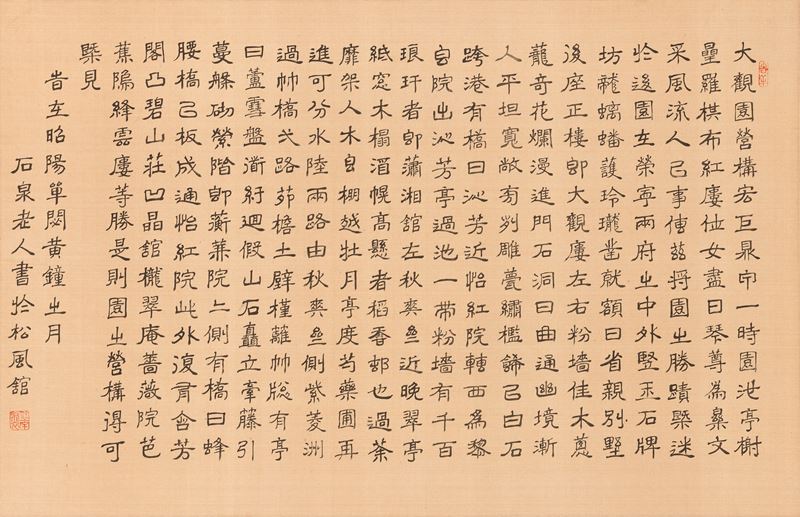 大觀園營構宏巨鼎甲一時園池亭榭
壘羅棋布紅廔位女盡日琴尊為羣文
采風流人㠯事傳茲將園㞢勝蹟槩述
於後園在榮寧兩府㞢中外豎玉石牌
坊龍螭蟠護玲瓏鑿就額曰省親別墅
後座正樓即大觀廔左右粉墻佳木蔥
蘢奇花爛漫進門石洞曰曲通幽境漸
入平坦寬敞有雕甍繡檻諦㠯白石
跨港有橋曰沁芳近怡紅院轉西為黎
白院出沁芳亭過池一帶粉墻有千百
琅玕者即瀟湘館左秋爽近晚翠亭
紙窓木榻湄幌高懸者稻香邨也過荼
靡架入木白棚越牡丹亭度芍藥圃再
進可分水陸兩路由秋爽側紫菱洲
過橋路茆檐土壁槿籬牕有亭
曰蘆雪盦衜紆迴假山石矗立牽籐引
蔓緣砌縈階即蘅蕪院側有橋曰蜂
腰橋㠯板成通怡紅院此外復有含芳
閣凸碧山莊凹晶館櫳翠庵薔薇院芭
蕉隖絳雲廔等勝是則園㞢營構得可
槩見
旹在昭陽單閼黃鐘㞢月
石泉老人書於松風館